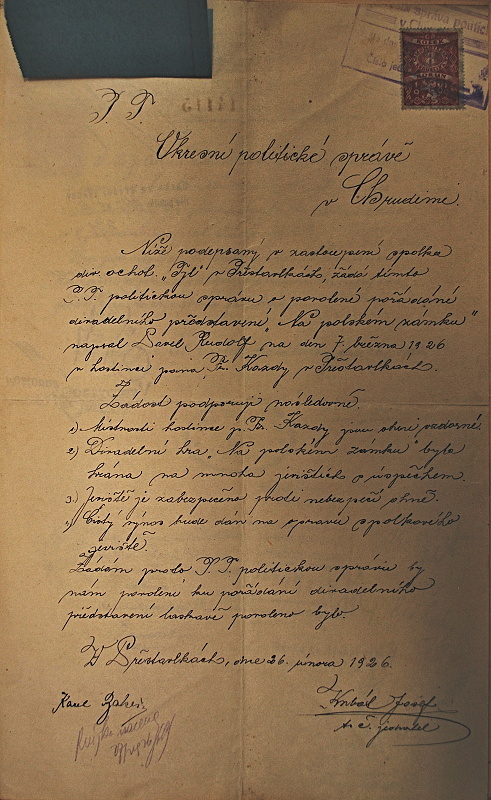 P. T.
Okresní politické správě
v Chrudimi.
Níže podepsaný v zastoupení spolku
div. ochot. „Tyl“ v Přestavlkách, žádá tímto
P. T. politickou správu o povolené pořádání
divadelního představení „Na polském zámku“
napsal Pavel Rudolf na den 7. března 1926
v hostinci pana Fr. Kazdy v Přestavlkách.
Žádost podporuji následovně.
1) Místnosti hostince p. Fr. Kazdy jsou ohni vzdorné.
2) Divadelní hra „Na polském zámku“ byla
hrána na mnoha jevištích s úspěchem.
3) Jeviště je zabezpečeno proti nebezpečí ohně.
Čistý výnos bude dán na opravu spolkového
jeviště.
Žádám proto P. T. politickou správu by
nám povolení ku pořádání divadelního
představení laskavě povoleno bylo.
V Přestavlkách, dne 26. února 1926.
Karel
Josef
t. č. jednatel